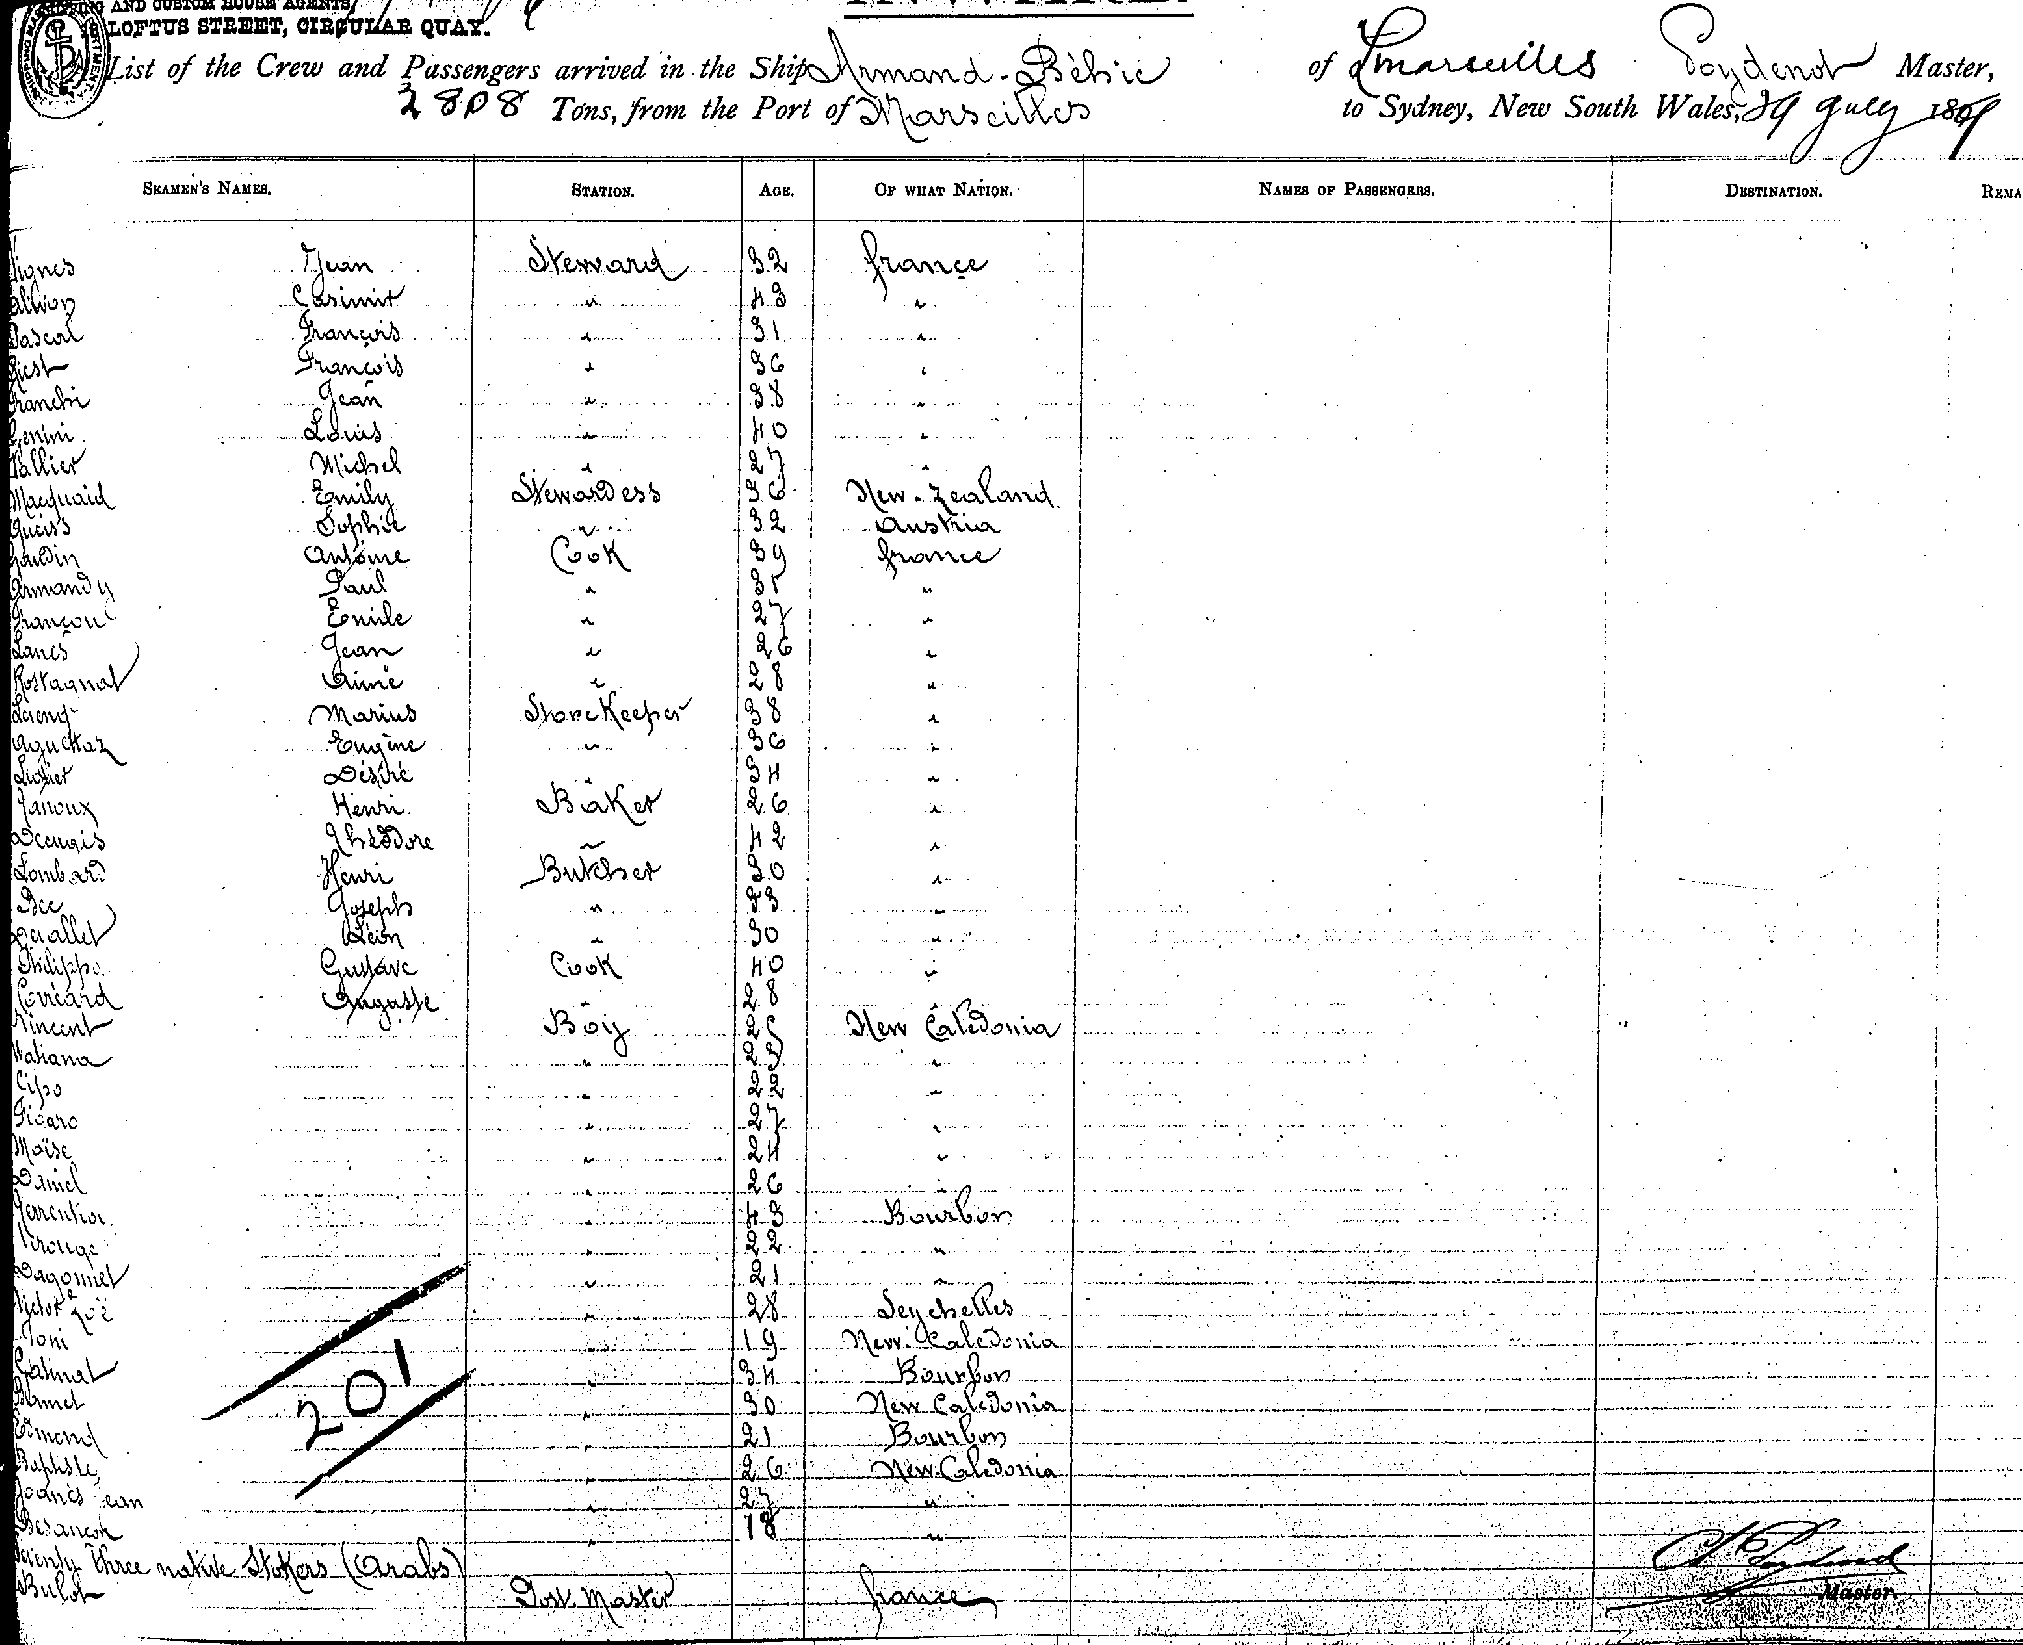 AND CUSTOM HOUSE AGENTS,
LOFTUS STREET, CIRCULAR QUAY.
List of the Crew and Passengers arrived in the Ship Armand-Béhic of Marseilles Poydenot Master,
2808 Tons, from the Port of Marseilles to Sydney, New South Wales, July 18
SEAMEN'S NAMES. STATION. AGE. OF WHAT NATION. NAMES OF PASSENGERS. DESTINATION. REMA
Vignes Jean Steward 32 france
Casimir " 43 "
Pascal François " 31 "
François " 36 "
Franchi Jean " 38 "
Louis " 40 "
Vallier Michel " 27 "
Macquaid Emily Stewardess 36 New-Zealand
Sophie " 32 Austria
Gaudin Antoine Cook 39 france
Armandy Paul " "
Françou Emile " 27 "
Lanes Jean " 26 "
Rostagnat Aimé " 28 "
Marius StoreKeeper 38 "
Aguettaz Eugène " 36 "
Désiré " 34 "
Janoux Henri Baker 26 "
Théodore " 42 "
Lombard Henri Butcher 30 "
Bec Joseph " 33 "
Léon " 30 "
Philippo Gustave Cook 40 "
Auguste " 28 "
Vincent Boy New Caledonia
" "
Cipo " 22 "
" 27 "
Moïse " 24 "
Daniel " 26 "
" 43 Bourbon
" 22 "
Dagonnet " 21 "
Victor Zoé " 28 Seychelles
Toni " 19 New. Caledonia
Catinat " 34 Bourbon
" 30 New Caledonia
Edmond " 21 Bourbon
Baptiste " 26 New-Caledonia
" 27 "
Besançon " 18 "
201
Seventy three native Stokers (Arabs)
Bulot Post Master france
Master.